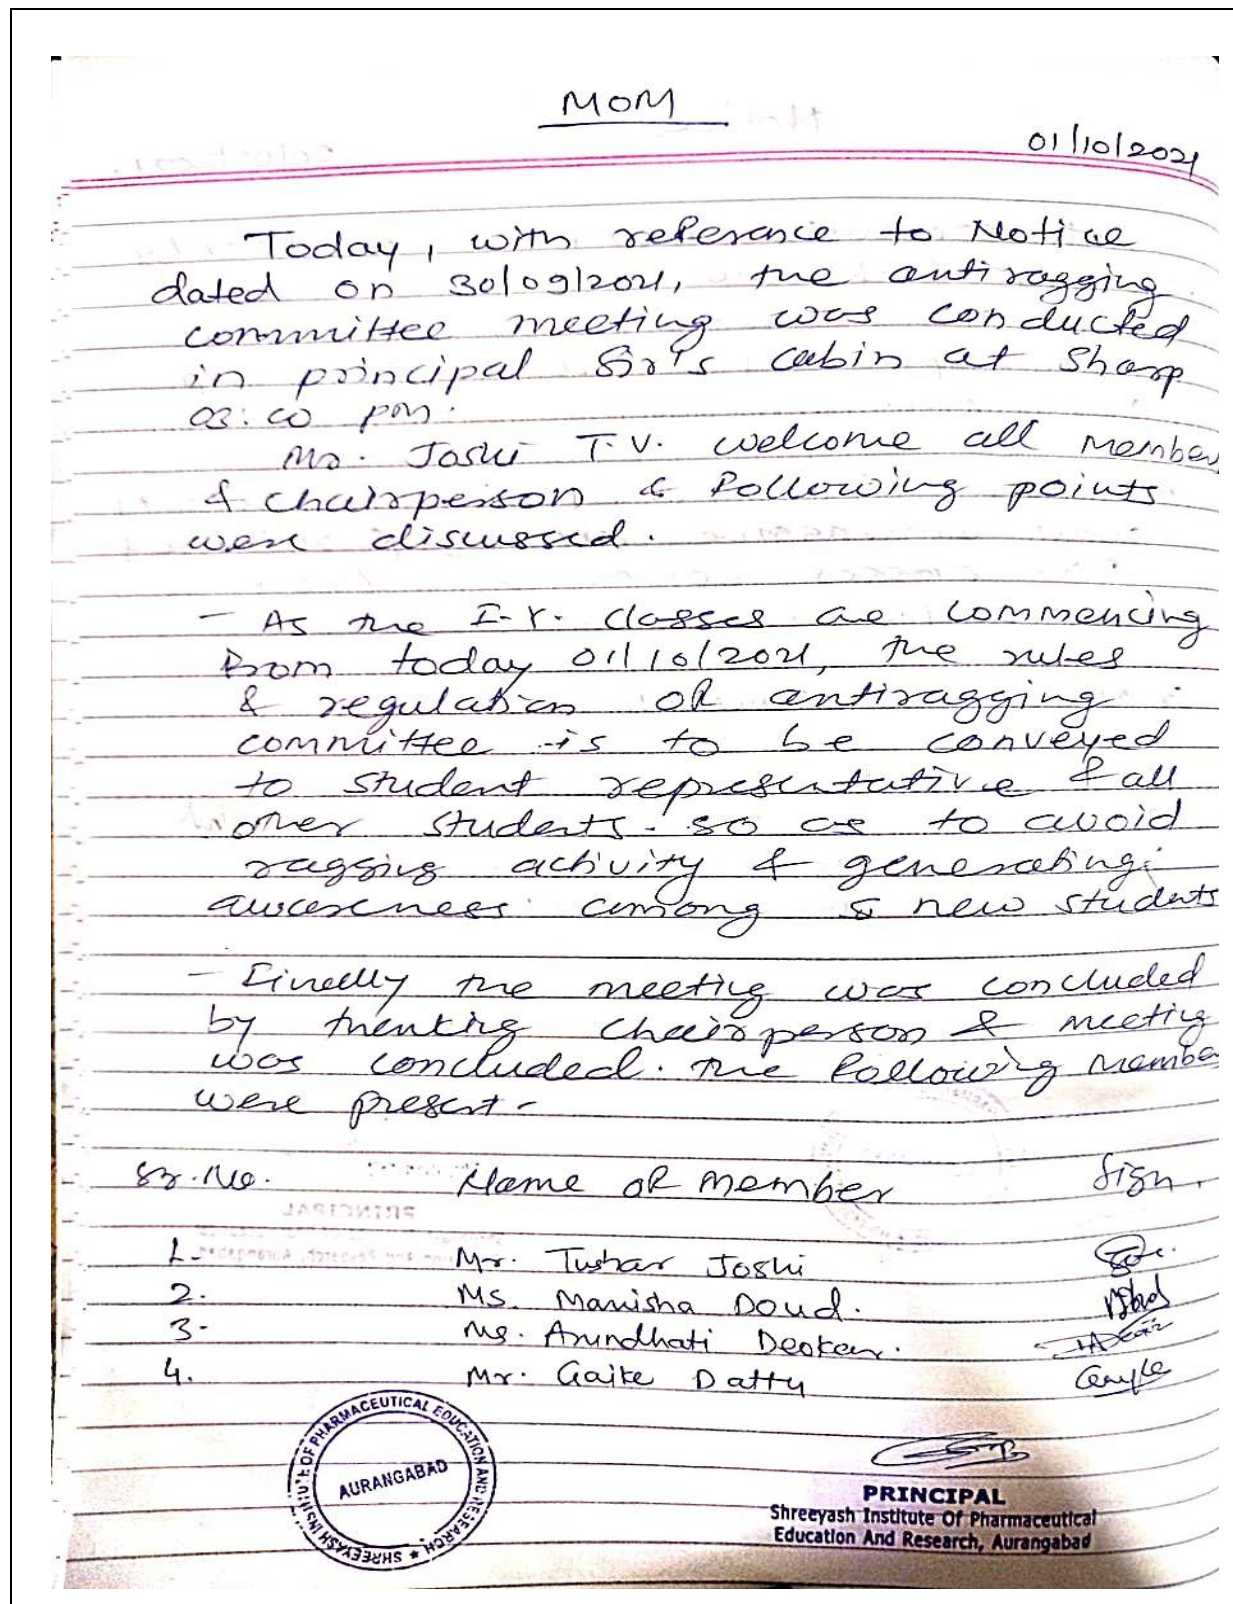 MOM
01/10/2021
Today, with reference to Notice
dated on 30/09/2021, the antiragging
committee meeting was conducted
in principal Sir's cabin at Sharp
03:00 pm.
Mr. Joshi T.V. welcome all Member
& chairperson & following points
were discussed.
- As the I-Y. classes are commencing
from today 01/10/2021, the rules
& regulation of antiragging
committee is to be conveyed
to student representative & all
other students. so as to avoid
ragging activity & generating
awareness among new students
- Finally the meeting was concluded
by thanking chairperson & meeting
was concluded. The following Member
were present-
Sr. No. Name of Member Sign.
1- Mr. Tushar Joshi
2. Ms. Manisha Doud.
3- Ms. Arundhati Deokar.
4. Mr. Gaike Datty
SHREEYASH INSTITUTE OF PHARMACEUTICAL EDUCATION AND RESEARCH, ★
AURANGABAD
PRINCIPAL
Shreeyash Institute Of Pharmaceutical
Education And Research, Aurangabad